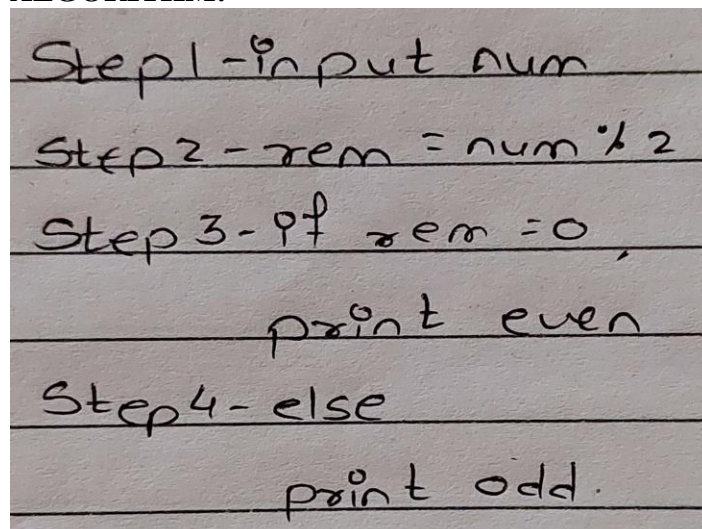 Step1-input num
Step2-rem = num % 2
Step 3-if rem =0,
print even
Step4- else
print odd.